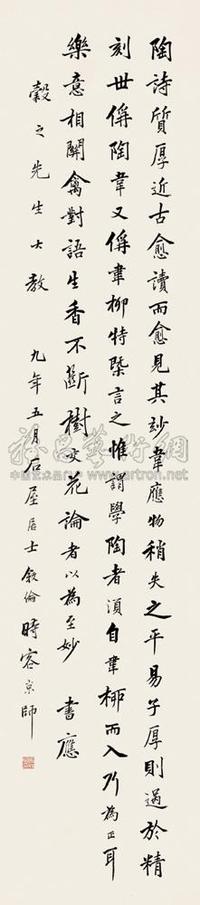 陶詩質厚近古愈讀而愈見其妙韋應物稍失之平易子厚則過於精
刻世偁陶韋又偁韋柳特槩言之惟謂學陶者須自韋柳而入乃為正耳
樂意相關禽對語生香不斷樹交花論者以為至妙 書應
榖之先生大教 九年五月石屋居士敘倫時客京師
雅昌藝術網
中国艺术品门户 www.artron.net